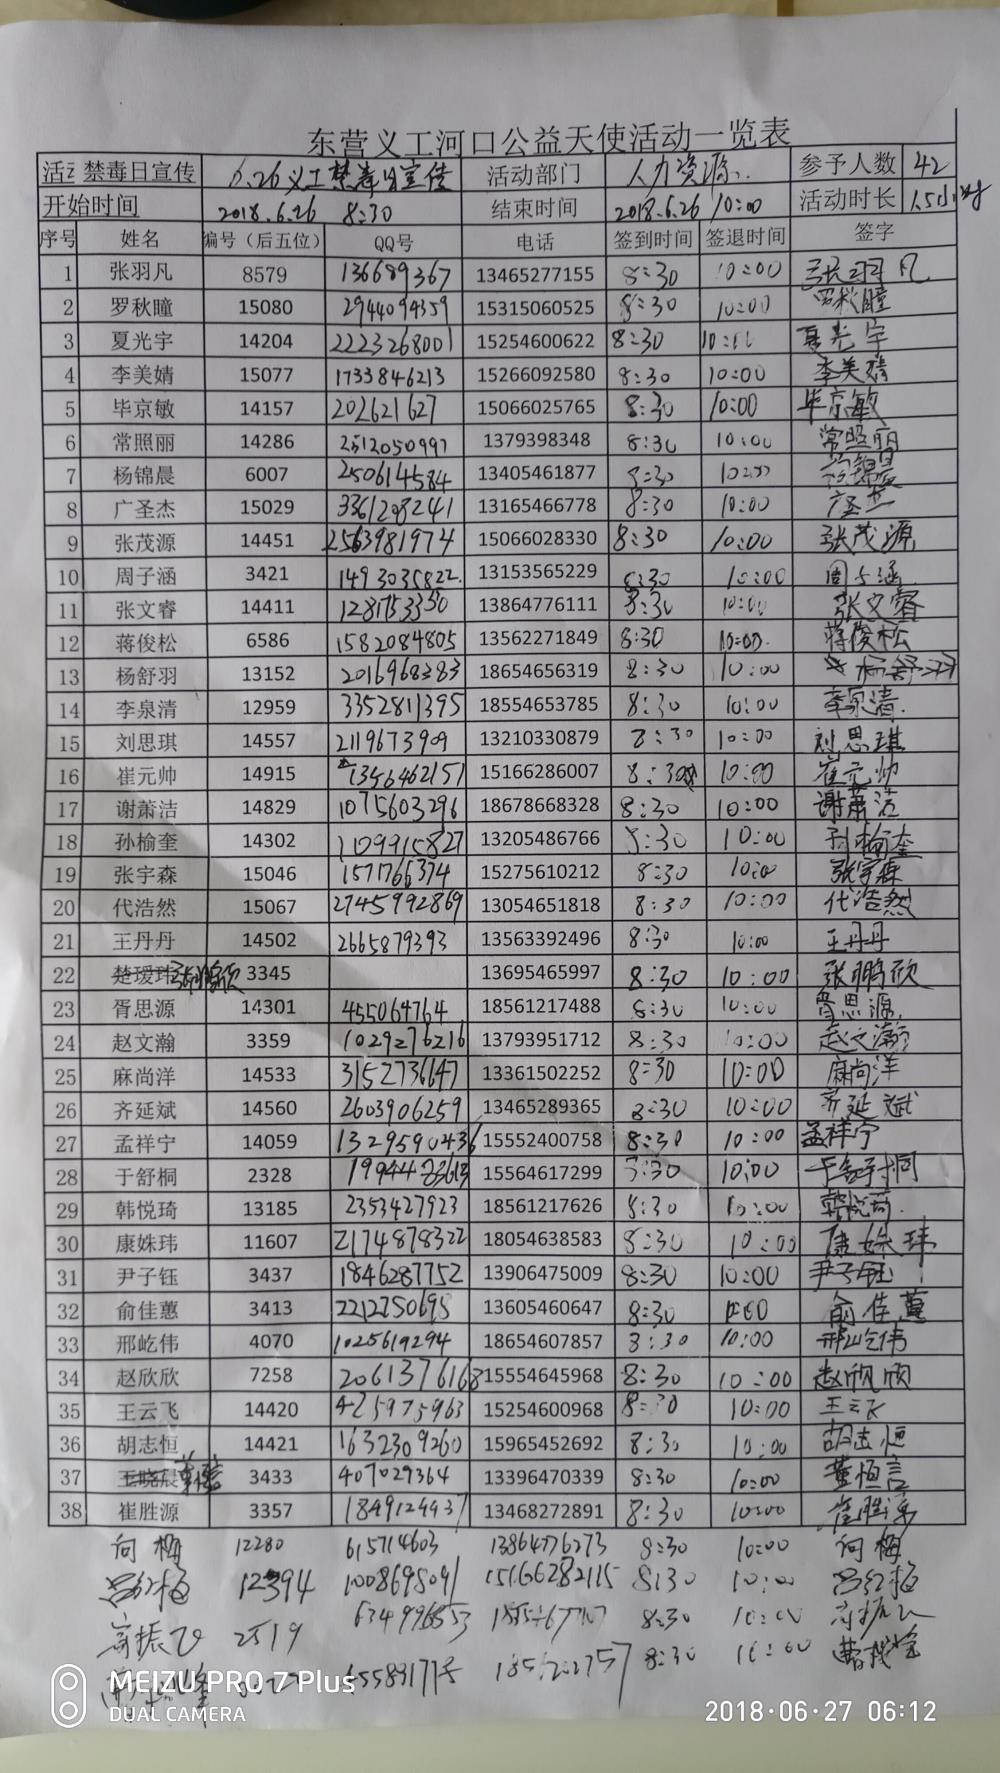 东营义工河口公益天使活动一览表
活动 禁毒日宣传 6.26义工禁毒日宣传 活动部门 人力资源 参予人数 42
开始时间 2018.6.26 8:30 结束时间 2018.6.26 10:00 活动时长 1.5小时
序号 姓名 编号（后五位） QQ号 电话 签到时间 签退时间 签字
1 张羽凡 8579 136689367 13465277155 8:30 10:00 张羽凡
2 罗秋瞳 15080 2944094359 15315060525 8:30 10:00 罗秋瞳
3 夏光宇 14204 2223268001 15254600622 8:30 10:00 夏光宇
4 李美婧 15077 1733846213 15266092580 8:30 10:00 李美婧
5 毕京敏 14157 202621627 15066025765 8:30 10:00 毕京敏
6 常照丽 14286 2512050991 1379398348 8:30 10:00 常照丽
7 杨锦晨 6007 250614584 13405461877 8:30 10:00 杨锦晨
8 广圣杰 15029 3361208241 13165466778 8:30 10:00 广圣杰
9 张茂源 14451 2563981974 15066028330 8:30 10:00 张茂源
10 周子涵 3421 1493035822 13153565229 8:30 10:00 周子涵
11 张文睿 14411 1281753350 13864776111 8:30 10:00 张文睿
12 蒋俊松 6586 1582084805 13562271849 8:30 10:00 蒋俊松
13 杨舒羽 13152 2016968383 18654656319 8:30 10:00 杨舒羽
14 李泉清 12959 3352811395 18554653785 8:30 10:00 李泉清
15 刘思琪 14557 2119673909 13210330879 8:30 10:00 刘思琪
16 崔元帅 14915 1356462151 15166286007 8:30 10:00 崔元帅
17 谢萧洁 14829 1075603296 18678668328 8:30 10:00 谢萧洁
18 孙榆奎 14302 1109915827 13205486766 8:30 10:00 孙榆奎
19 张宇森 15046 1571766374 15275610212 8:30 10:00 张宇森
20 代浩然 15067 2745992869 13054651818 8:30 10:00 代浩然
21 王丹丹 14502 2665879393 13563392496 8:30 10:00 王丹丹
22 楚瑷玮 张鹏欣 3345 13695465997 8:30 10:00 张鹏欣
23 胥思源 14301 455064764 18561217488 8:30 10:00 胥思源
24 赵文瀚 3359 1029276216 13793951712 8:30 10:00 赵文瀚
25 麻尚洋 14533 3152736647 13361502252 8:30 10:00 麻尚洋
26 齐延斌 14560 2603906259 13465289365 8:30 10:00 齐延斌
27 孟祥宁 14059 1329590436 15552400758 8:30 10:00 孟祥宁
28 于舒桐 2328 15564617299 8:30 10:00 于舒桐
29 韩悦琦 13185 2353427923 18561217626 8:30 10:00 韩悦琦
30 康姝玮 11607 2174878322 18054638583 8:30 10:00 康姝玮
31 尹子钰 3437 1846287752 13906475009 8:30 10:00 尹子钰
32 俞佳蕙 3413 2212750695 13605460647 8:30 10:00 俞佳蕙
33 邢屹伟 4070 1025619294 18654607857 8:30 10:00 邢屹伟
34 赵欣欣 7258 2061376168 15554645968 8:30 10:00 赵欣欣
35 王云飞 14420 425975963 15254600968 8:30 10:00 王云飞
36 胡志恒 14421 1632309260 15965452692 8:30 10:00 胡志恒
37 王晓晨 3433 407029364 13396470339 8:30 10:00 董恒言
38 崔胜源 3357 1849124937 13468272891 8:30 10:00 崔胜源
向梅 12280 615714603 13864776273 8:30 10:00 向梅
吕红梅 12394 1008695091 15166282115 8:30 10:00 吕红梅
2519 634996853 8:30 10:00
8:30 10:00
MEIZU PRO 7 Plus
DUAL CAMERA
2018·06·27 06:12